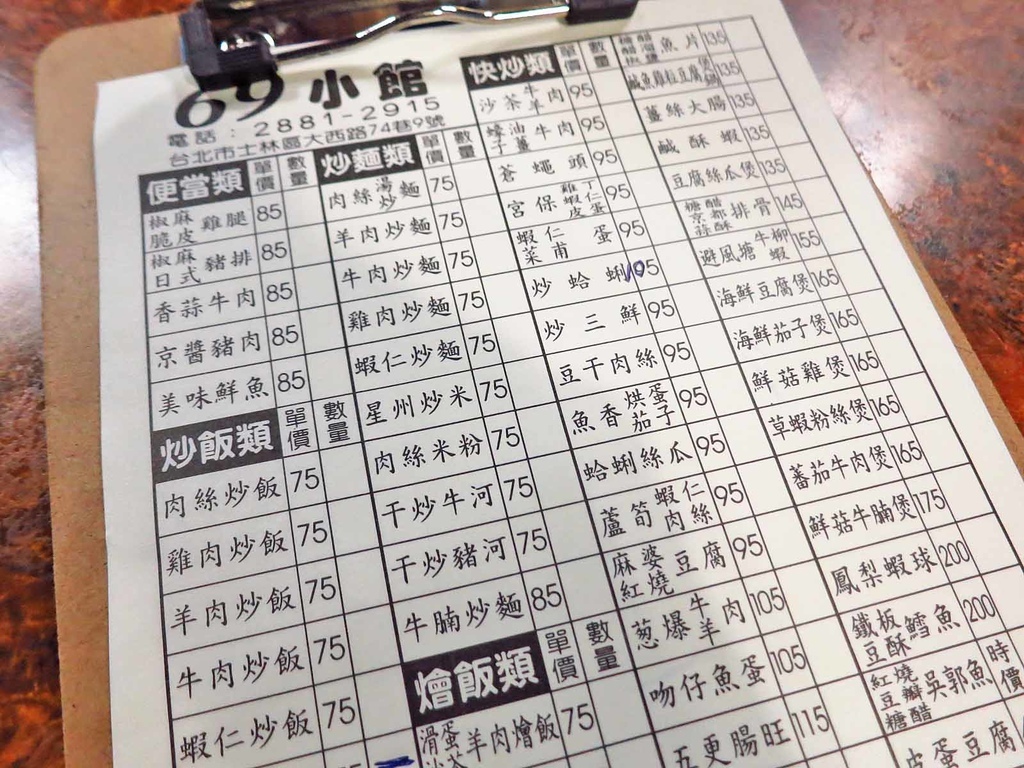 69 小館
電話：2881-2915
台北市士林區大西路74巷9號
便當類 單價 數量
椒麻脆皮雞腿 85
椒麻日式豬排 85
香蒜牛肉 85
京醬豬肉 85
美味鮮魚 85
炒飯類 單價 數量
肉絲炒飯 75
雞肉炒飯 75
羊肉炒飯 75
牛肉炒飯 75
蝦仁炒飯 75
炒麵類 單價 數量
肉絲湯炒麵 75
羊肉炒麵 75
牛肉炒麵 75
雞肉炒麵 75
蝦仁炒麵 75
星州炒米 75
肉絲米粉 75
干炒牛河 75
干炒豬河 75
牛腩炒麵 85
燴飯類 單價 數量
滑蛋羊肉燴飯 75
快炒類 單價 數量
沙茶牛羊肉 95
蠔油子薑牛肉 95
蒼蠅頭 95
宮保雞丁蝦仁皮蛋 95
蝦仁菜甫蛋 95
炒蛤蜊 95
炒三鮮 95
豆干肉絲 95
魚香烘蛋茄子 95
蛤蜊絲瓜 95
蘆筍蝦仁肉絲 95
麻婆紅燒豆腐 95
蔥爆牛羊肉 105
吻仔魚蛋 105
五更腸旺 115
魚片 135
鹹魚雞粒豆腐煲 135
薑絲大腸 135
鹹酥蝦 135
豆腐絲瓜煲 135
糖醋京都蒜酥排骨 145
避風塘牛柳蝦 155
海鮮豆腐煲 165
海鮮茄子煲 165
鮮菇雞煲 165
草蝦粉絲煲 165
蕃茄牛肉煲 165
鮮菇牛腩煲 175
鳳梨蝦球 200
鐵板豆酥鱈魚 200
紅燒豆瓣糖醋吳郭魚 時價
皮蛋豆腐